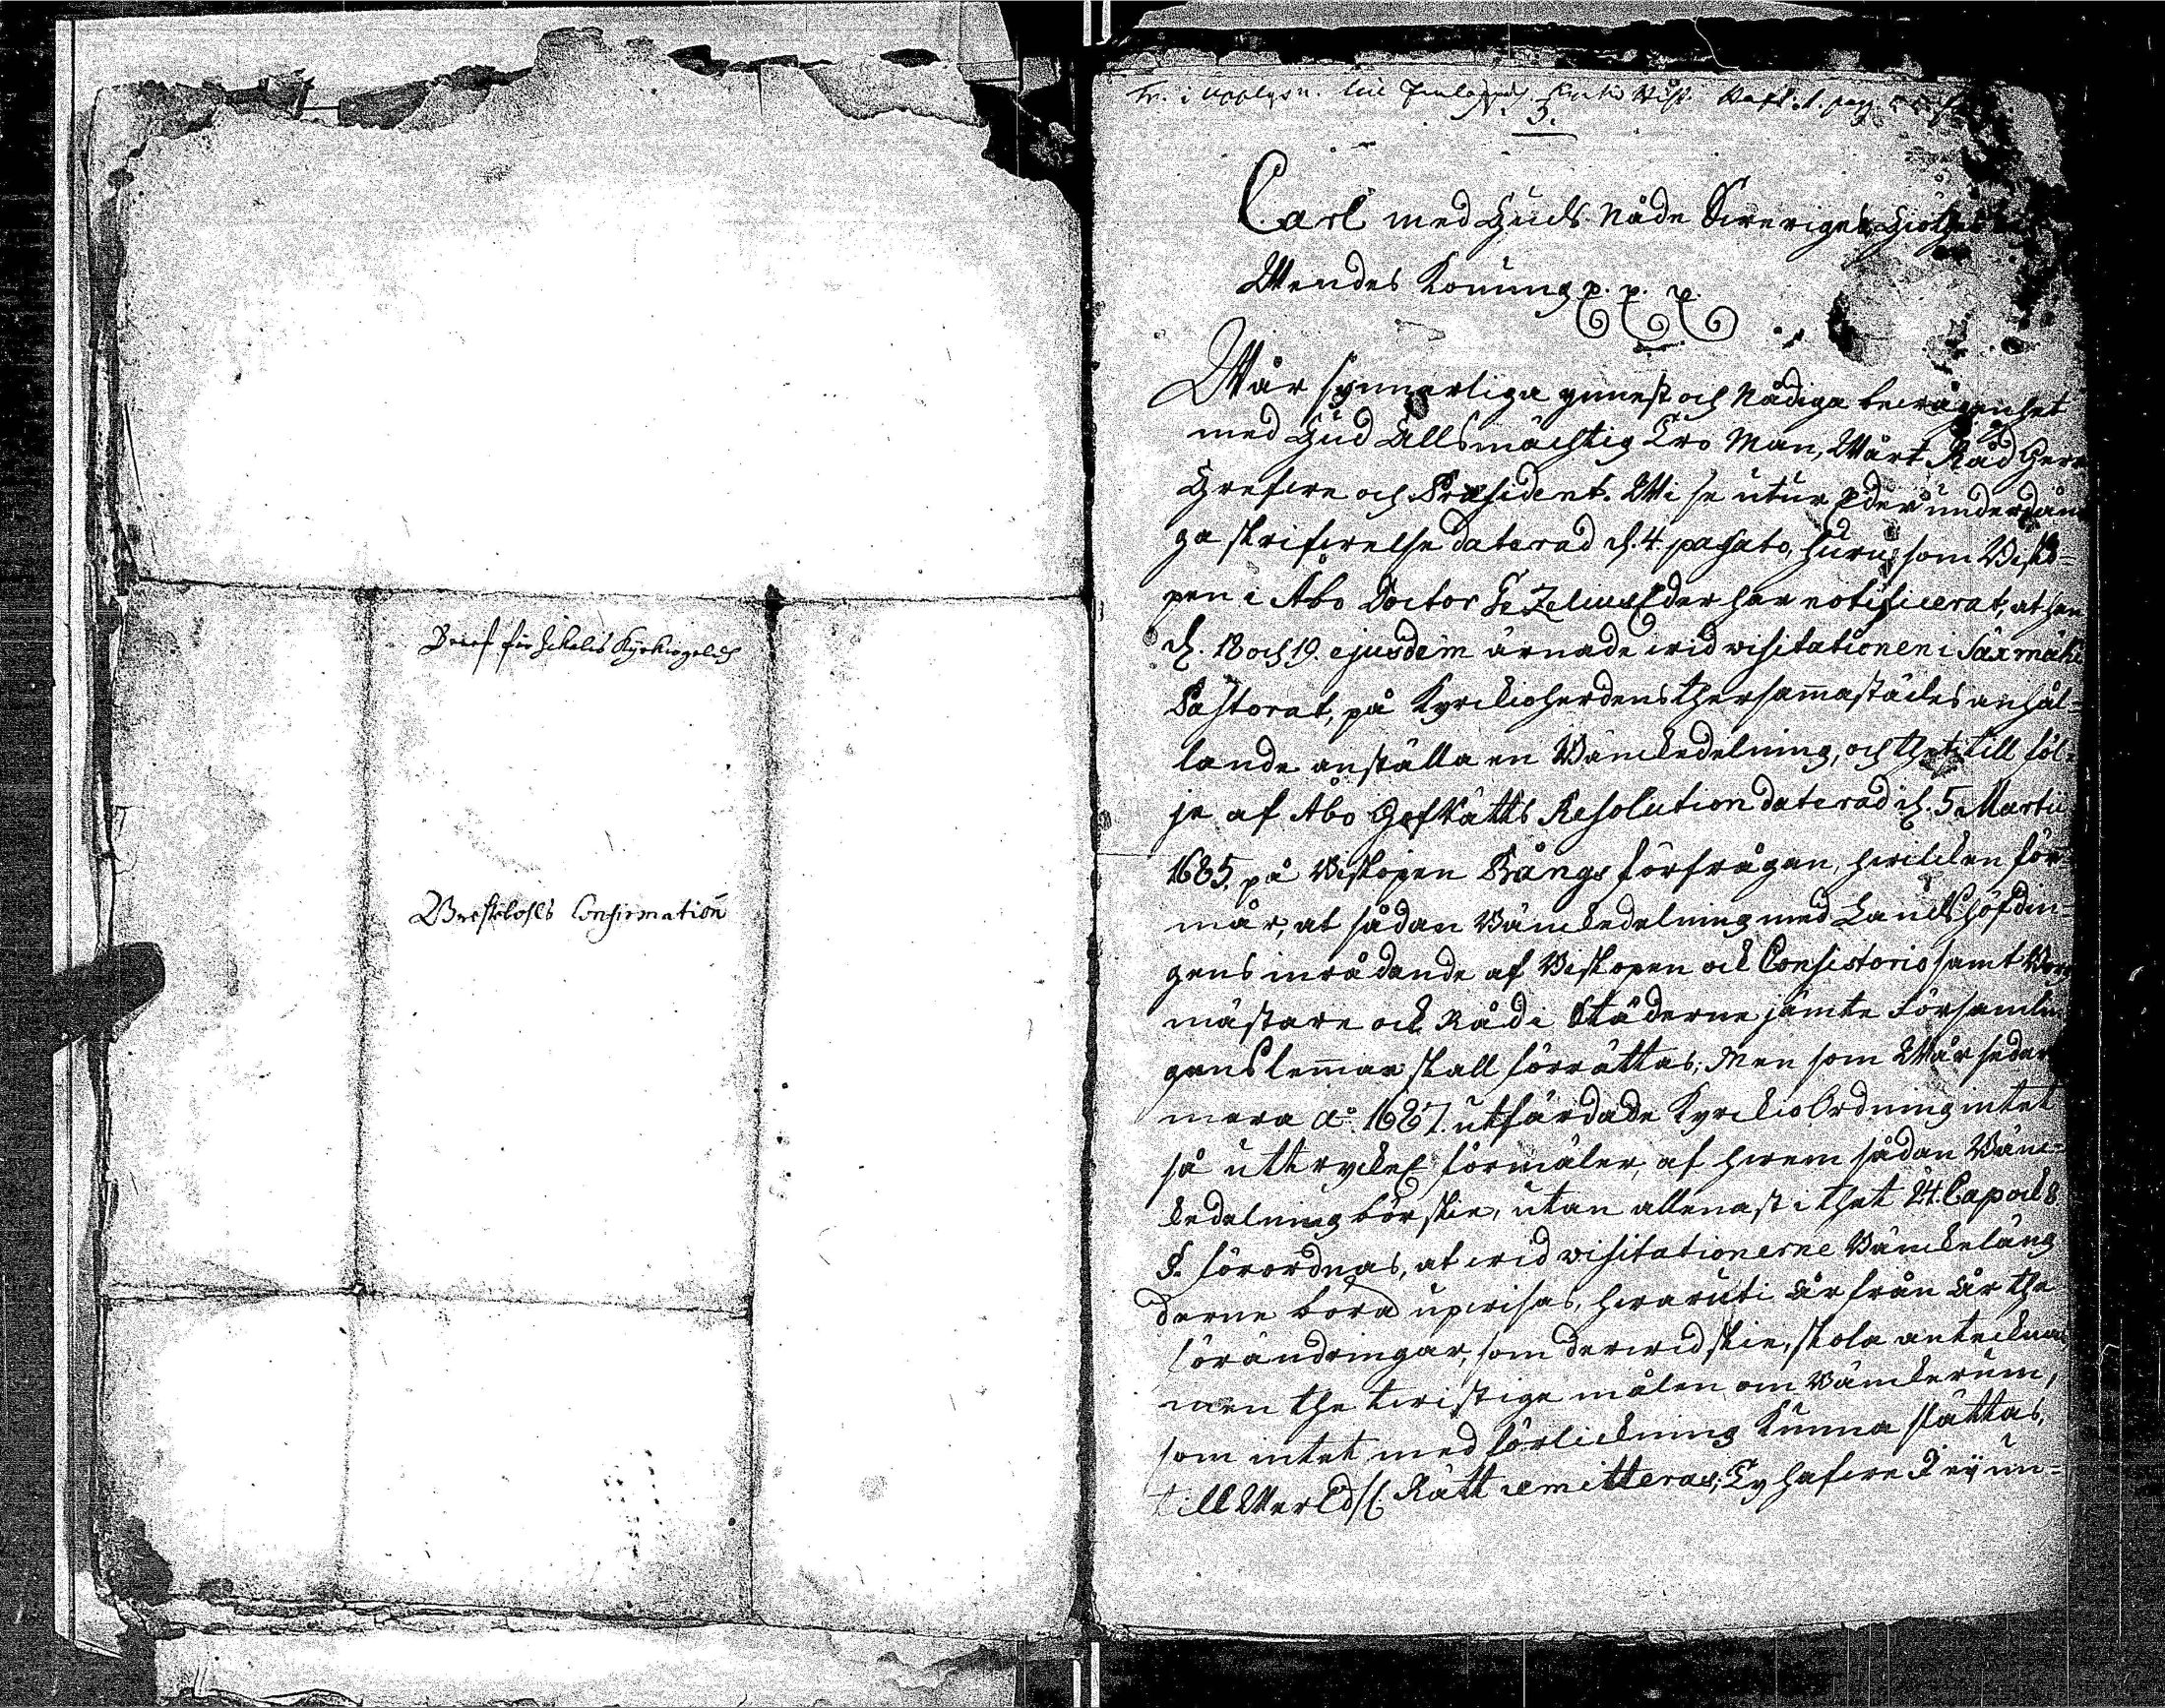 Bref för Sihalis Kyrkiogeld
Breftobeds Confirmation
Tr. i Upplysn. till Finlands Hist. Häft. 1. pag.
N. 3.
Carl med Guds Nåde Sweriges, Giöthes
Wendes Konung p. p. p.
Wår synnerliga ynnest och Nådiga bewågenhet
med Gud Allsmächtig Tro Man, Wårt Råd Herr
Grefwe och Præsident. Wi se utur Eder underdån
ga skrifwelse daterad d. 4. passato, huru som Bisko-
pen i Åbo Doctor Gezelius Eder har notificerat, at han
d. 18 och 19. ejusdem ärnade wid visitationen i Säxmäki
Pastorat, på Kyrckioherdens thersammastädes anhål-
lande anställa en Bänckedelning, och thet till föl-
je af Åbo HofRätts Resolution daterad d. 5 Martii
1685. på Biskopen Bångs förfrågan, hwilcken för-
mår, at sådan Bänckedelning med Landshöfdin-
gens inrådande af Biskopen och Consistorio samt Borg
mästare och Råd i Städerne jämte Församlin
gens lemmar skall förrättas; Men som Wår sedar
mera Ao. 1687. utfärdade KyrckioOrdning intet
så uttryckel. förmäler, af hwem sådan Bänc-
kedelning bör skie, utan allenast i thet 24. Cap och 8
§. förordnas, at wid visitationerne Bänckeläng
derne böra upwisas, hwaruti År från År the
förändringar, som derwid skie, skola antecknas
men the twistige målen om Bänckerum,
som intet med förlickning kunna slättas,
till Werldsl. Rätt remitteras; Ty hafwe I ey un-